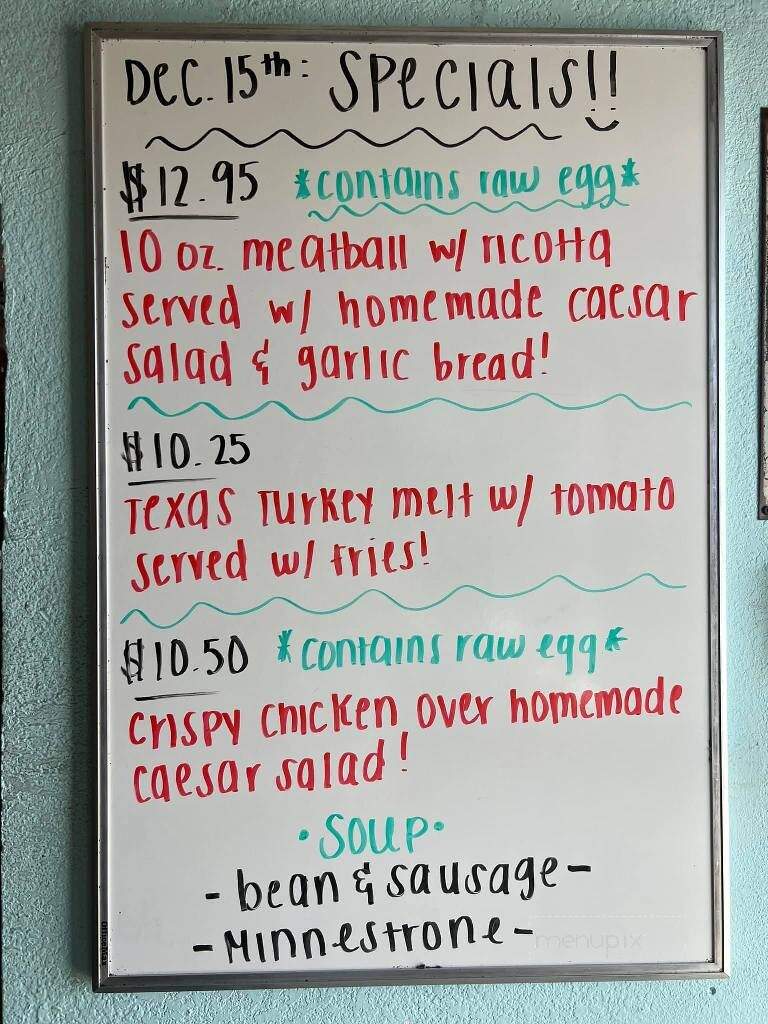 Dec. 15th: Specials!!
$12.95 *contains raw egg*
10 oz. meatball w/ ricotta
served w/ homemade caesar
salad & garlic bread!
$10.25
Texas Turkey melt w/ tomato
served w/ fries!
$10.50 *contains raw egg*
crispy chicken over homemade
caesar salad!
•Soup•
- bean & sausage -
- Minnestrone -
menupix
OfficeMax